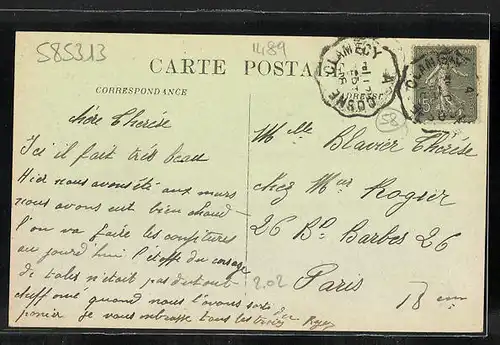 585313
1489
CARTE POSTALE
CORRESPONDANCE
ADRESSE
COSNE CLAMECY
58
chère Thérèse
Ici il fait très beau
Hier nous avons été aux murs
nous avons eut bien chaud
l'on va faire les confitures
au jourd'hui l'étoffe du corsage
de toles n'était pas du tout
chiffonné quand nous l'avons sorti du
panier je vous embrasse tous les
Melle Blavier Thérèse
chez Mme Rogier
26 Bd Barbes 26
Paris
18 eme
2.02